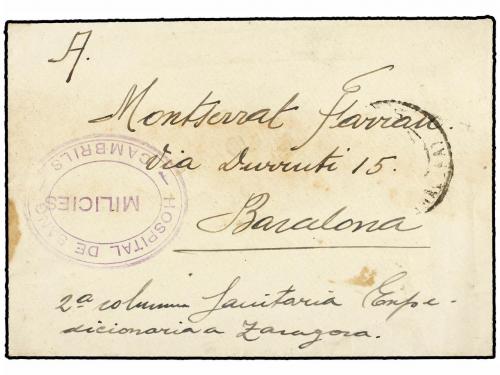 A.
Montserrat Farran.
Via Durruti 15.
Barcelona
HOSPITAL DE SANG
MILICIES
CAMBRILS
2ª columna Sanitaria Expe-
dicionaria a Zaragoza.